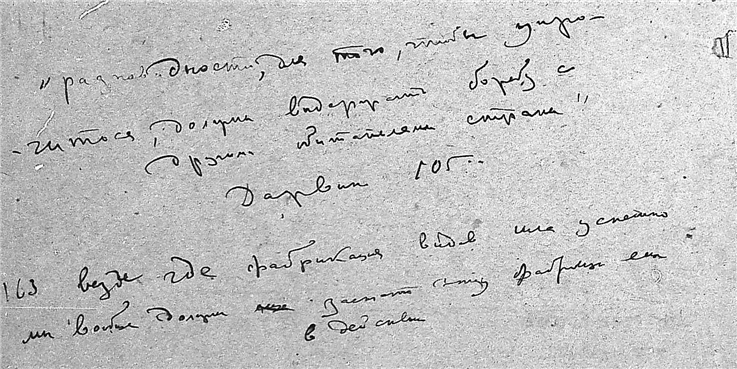 "разновидности, для того, чтобы упро-
-читься, должны выдержать борьбу с
другими обитателями страны"
Дарвин 105.
163 везде где фабрикация видов шла успешно
мы вообще должны застать эту фабрику еще
в действии